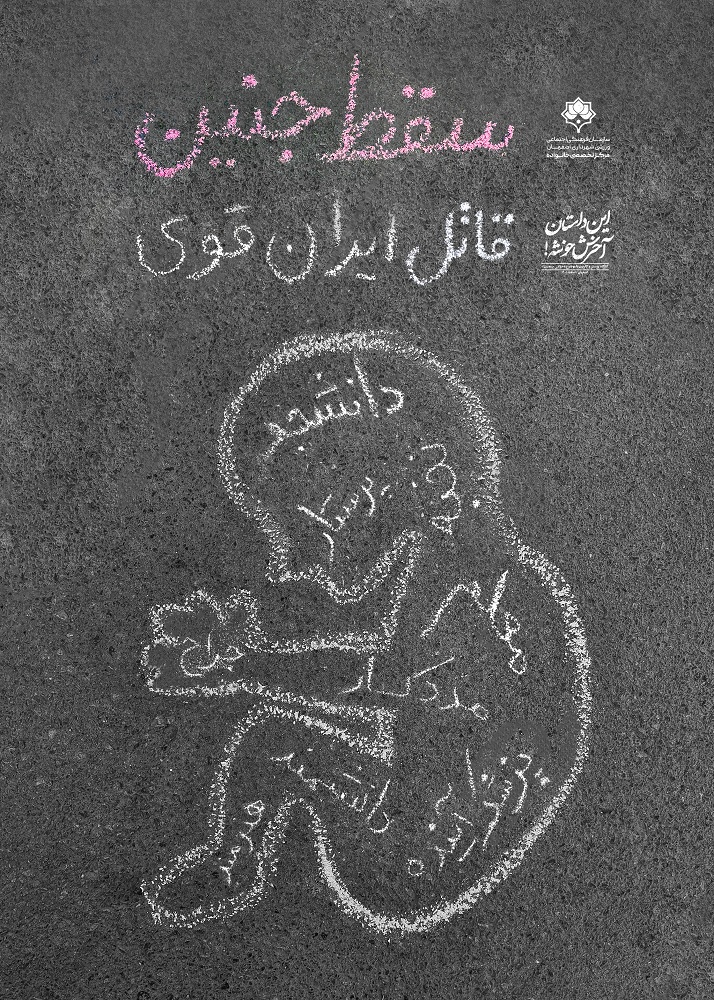 سقط جنین
سازمان فرهنگی اجتماعی
ورزشی شهرداری اصفهان
مرکز تخصصی خانواده
قاتل ایران قوی
این داستان
آخرش خونشه!
دانشجو
نخبه
پرستار
معلم
جراح
مددکار
پزشک آینده
دانشمند
هنرمند